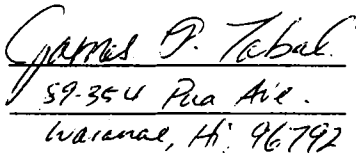 James P. Tabal
87-354 Pua Ave.
Waianae, Hi 96792